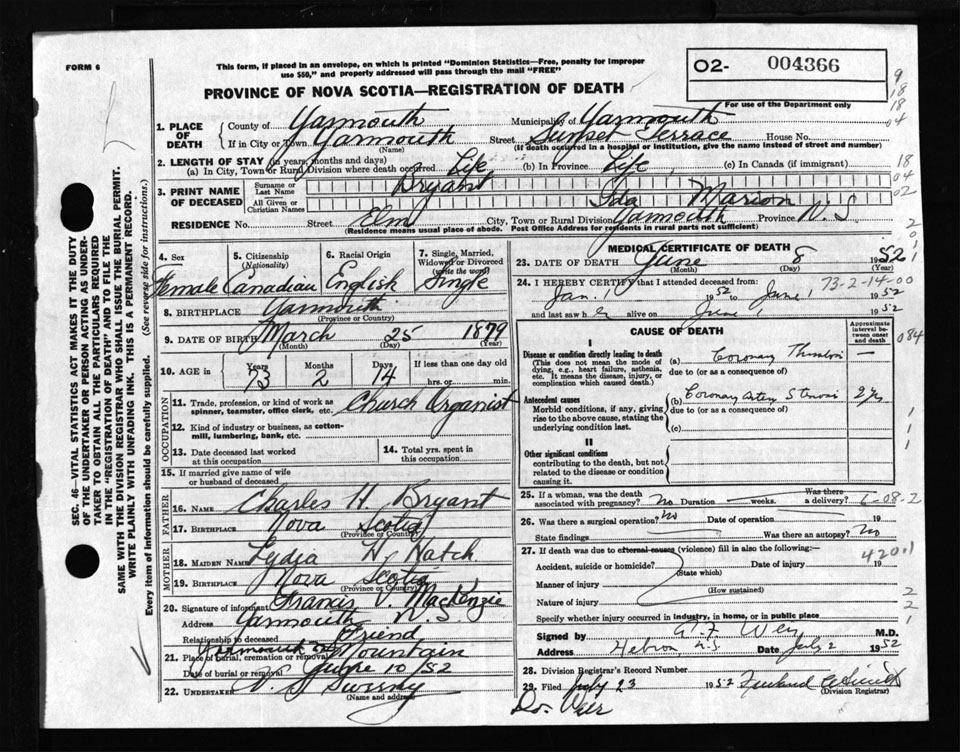 FORM 6
This form, if placed in an envelope, on which is printed "Dominion Statistics—Free, penalty for improper use $50," and properly addressed will pass through the mail "FREE"
O2- 004366
For use of the Department only
PROVINCE OF NOVA SCOTIA—REGISTRATION OF DEATH
9
18
18
04
1. PLACE OF DEATH County of Yarmouth Municipality of Yarmouth
If in City or Town Yarmouth (Name) Street Sunset Terrace House No.
(If death occurred in a hospital or institution, give the name instead of street and number)
2. LENGTH OF STAY (in years, months and days)
(a) In City, Town or Rural Division where death occurred Life (b) In Province Life (c) In Canada (if immigrant)
18
04
02
3. PRINT NAME OF DECEASED Surname or Last Name Bryant
All Given or Christian Names Ida Marion
RESIDENCE No. Street Elm City, Town or Rural Division Yarmouth Province N.S
(Residence means usual place of abode. Post Office Address for residents in rural parts not sufficient)
SEC. 46—VITAL STATISTICS ACT MAKES IT THE DUTY OF THE UNDERTAKER OR PERSON ACTING AS UNDERTAKER TO OBTAIN ALL THE PARTICULARS REQUIRED IN THE "REGISTRATION OF DEATH" AND TO FILE THE SAME WITH THE DIVISION REGISTRAR WHO SHALL ISSUE THE BURIAL PERMIT.
WRITE PLAINLY WITH UNFADING INK. THIS IS A PERMANENT RECORD.
Every item of information should be carefully supplied. (See reverse side for instructions.)
4. Sex Female
5. Citizenship (Nationality) Canadian
6. Racial Origin English
7. Single, Married, Widowed or Divorced (write the word) Single
8. BIRTHPLACE Yarmouth
(Province or Country)
9. DATE OF BIRTH March (Month) 25 (Day) 1879 (Year)
10. AGE in Years 73 Months 2 Days 14 If less than one day old hrs. or min.
OCCUPATION
11. Trade, profession, or kind of work as spinner, teamster, office clerk, etc. Church Organist
12. Kind of industry or business, as cotton-mill, lumbering, bank, etc.
13. Date deceased last worked at this occupation
14. Total yrs. spent in this occupation
15. If married give name of wife or husband of deceased
FATHER
16. Name Charles H. Bryant
17. Birthplace Nova Scotia
(Province or Country)
MOTHER
18. MAIDEN NAME Lydia H. Hatch
19. BIRTHPLACE Nova Scotia
(Province or Country)
20. Signature of informant Francis V. MacKenzie
Address Yarmouth N.S.
Relationship to deceased Friend
21. Place of burial, cremation or removal Mountain
Date of burial or removal June 10/52
22. UNDERTAKER V. S. Sweeny
(Name and address)
MEDICAL CERTIFICATE OF DEATH
23. DATE OF DEATH June (Month) 8 (Day) 1952 (Year)
24. I HEREBY CERTIFY that I attended deceased from: 73-2-14-00
Jan. 1 1952 to June 1 1952
and last saw her alive on June 1 1952
CAUSE OF DEATH
Approximate interval between onset and death
084
I
Disease or condition directly leading to death (This does not mean the mode of dying, e.g., heart failure, asthenia, etc. It means the disease, injury, or complication which caused death.)
(a) Coronary Thrombosis —
due to (or as a consequence of)
Antecedent causes
Morbid conditions, if any, giving rise to the above cause, stating the underlying condition last.
(b) Coronary artery Stenosis 2 yr
due to (or as a consequence of)
(c)
II
Other significant conditions
Contributing to the death, but not related to the disease or condition causing it.
25. If a woman, was the death associated with pregnancy? no Duration — weeks. Was there a delivery?
6-08-2
26. Was there a surgical operation? no Date of operation 19
State findings Was there an autopsy? no
27. If death was due to external causes (violence) fill in also the following:—
420.1
Accident, suicide or homicide? (State which) Date of injury 19
Manner of injury (How sustained)
Nature of injury
Specify whether injury occurred in industry, in home, or in public place
Signed by Weir M.D.
Address Hebron N.S. Date July 2 1952
28. Division Registrar's Record Number
29. Filed July 23 1952
(Division Registrar)
Dr. Weir